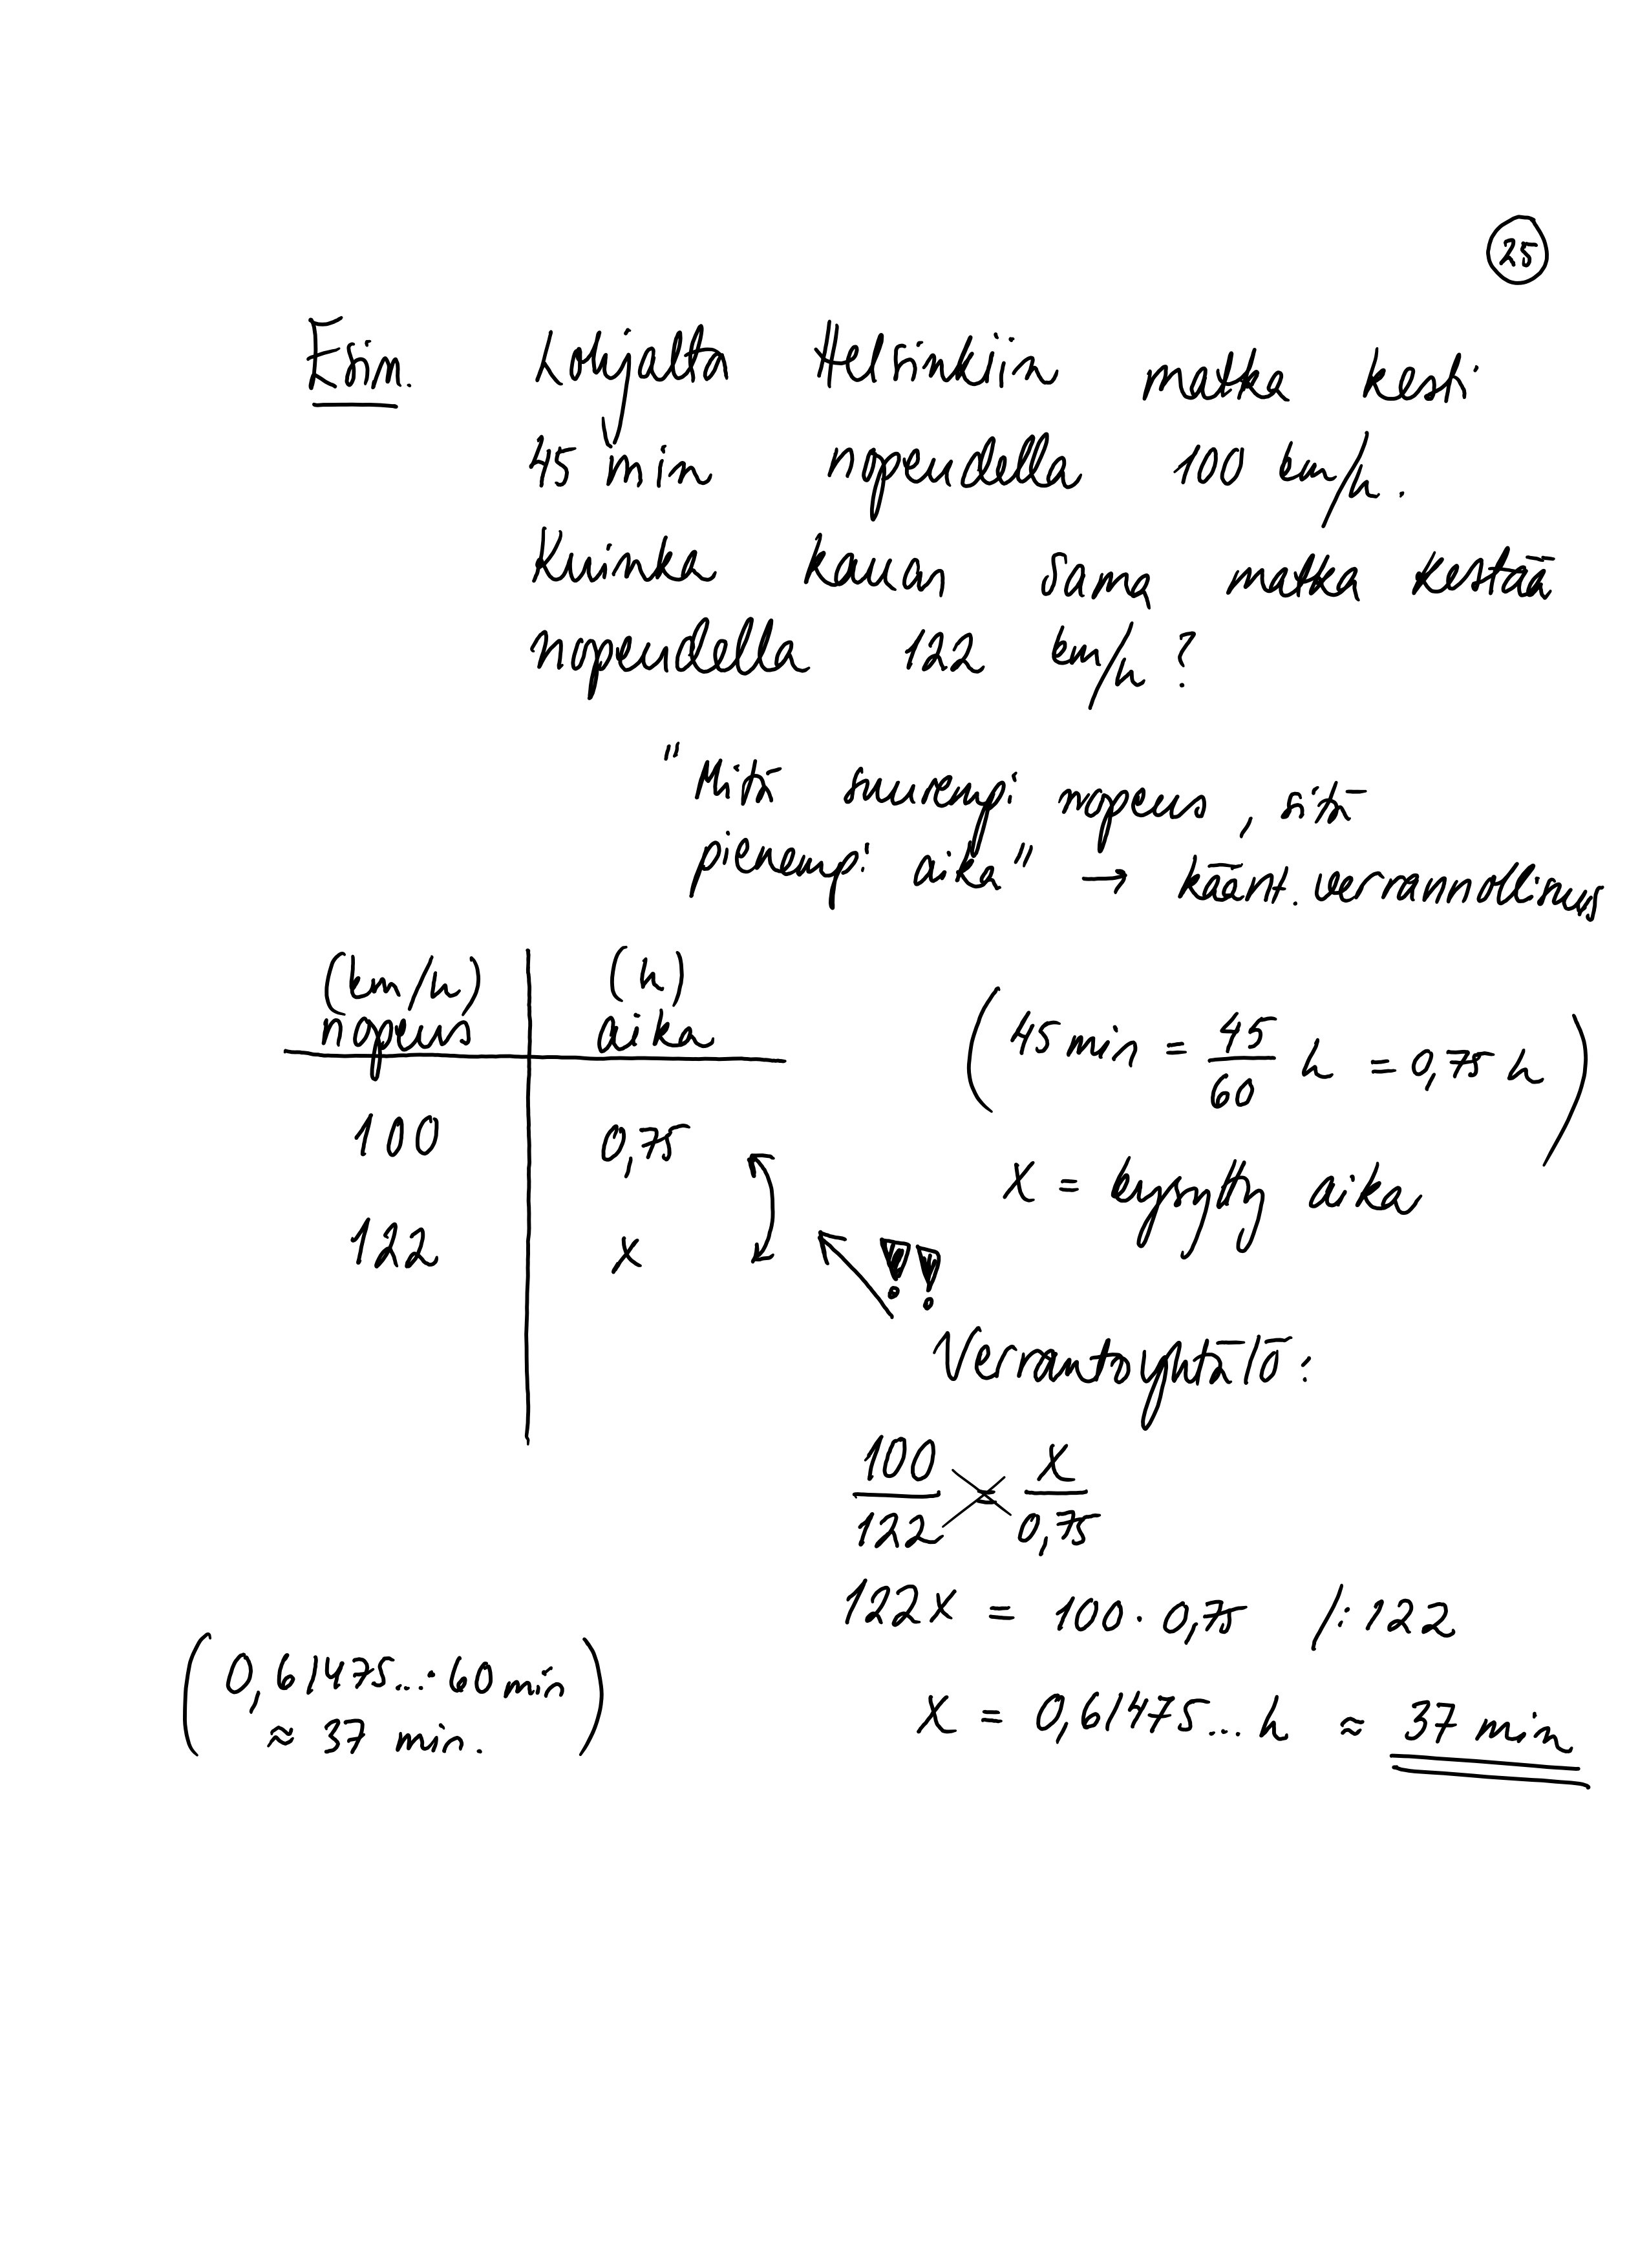 25
Esim. Lohjalta Helsinkiin matka kesti
45 min nopeudella 100 km/h.
Kuinka kauan sama matka kestää
nopeudella 122 km/h?
"Mitä suurempi nopeus, sitä
pienempi aika" → käänt. verrannollisuus
(km/h) (h)
nopeus aika
(45 min = 45/60 h = 0,75 h)
100 0,75
x = kysytty aika
122 x
!!
Verrantoyhtälö:
100/122 = x/0,75
122x = 100 · 0,75 /:122
(0,61475...·60 min
≈ 37 min.)
x = 0,61475... h ≈ 37 min